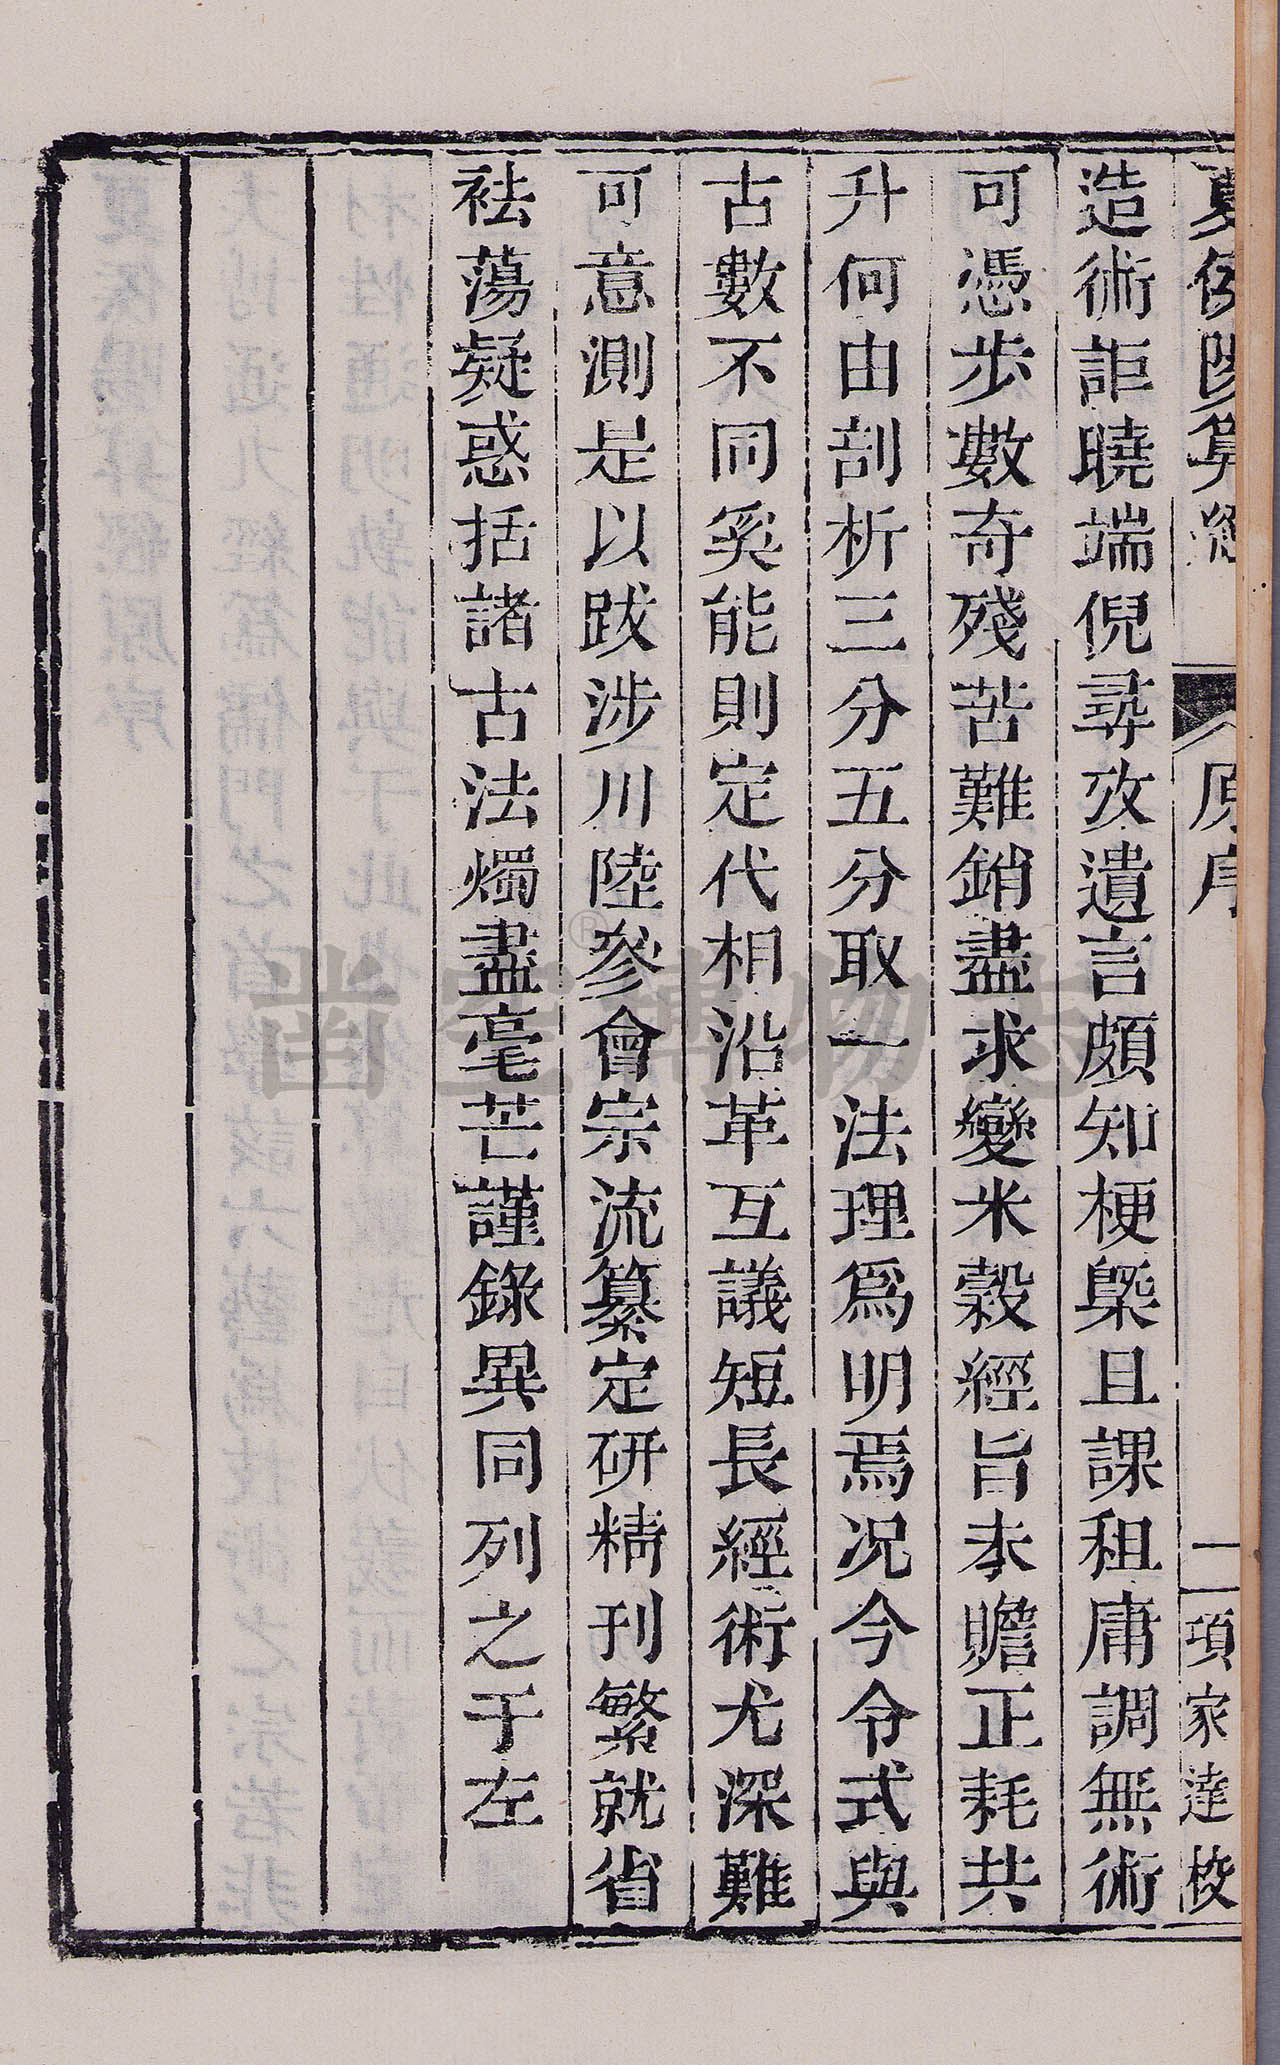 夏侯陽算經 原序 二 項家達校
造術詎曉端倪尋攷遺言頗知梗槩且課租庸調無術
可憑步數奇殘苦難銷盡求變米穀經旨未贍正耗共
升何由剖析三分五分取一法理爲明焉况今令式與
古數不同奚能則定代相沿革互議短長經術尤深難
可意測是以跋涉川陸參會宗流纂定研精刊繁就省
袪蕩疑惑括諸古法燭盡毫芒謹錄異同列之于左